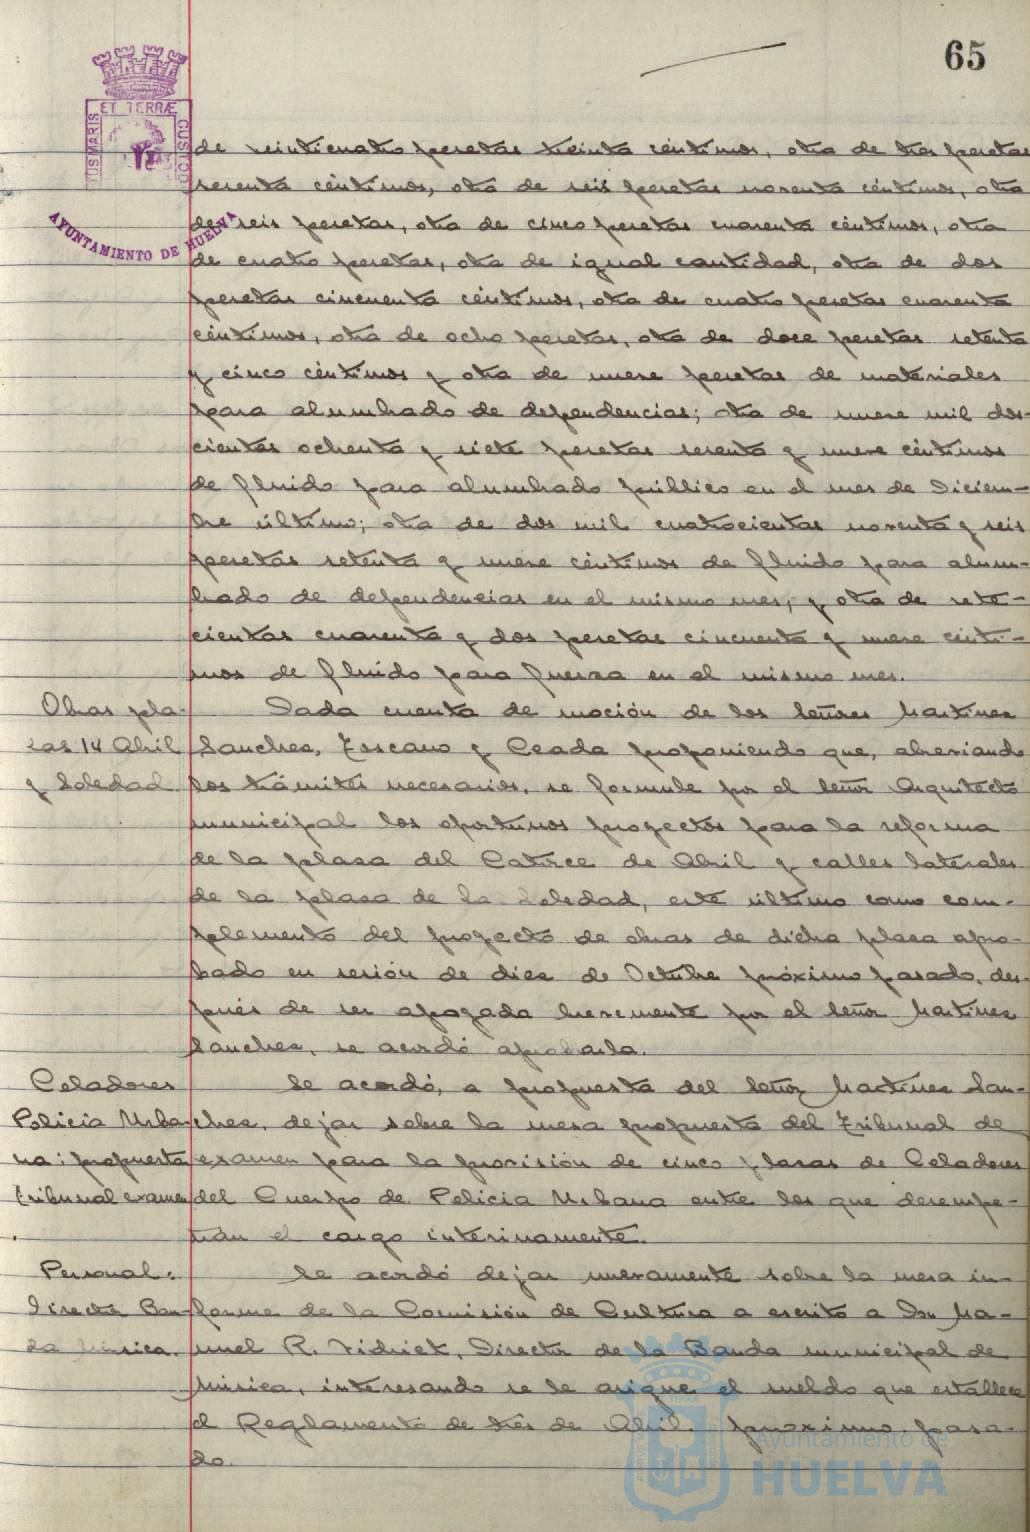 65
ET TERRÆ
TUS MARIS
CUSTOD
AYUNTAMIENTO DE HUELVA
de veinticuatro pesetas treinta céntimos, otra de tres pesetas
sesenta céntimos, otra de seis pesetas noventa céntimos, otra
de seis pesetas, otra de cinco pesetas cuarenta céntimos, otra
de cuatro pesetas, otra de igual cantidad, otra de dos
pesetas cincuenta céntimos, otra de cuatro pesetas cuarenta
céntimos, otra de ocho pesetas, otra de doce pesetas setenta
y cinco céntimos y otra de nueve pesetas de materiales
para alumbrado de dependencias; otra de nueve mil dos-
cientas ochenta y siete pesetas sesenta y nueve céntimos
de fluido para alumbrado público en el mes de Diciem-
bre último; otra de dos mil cuatrocientas noventa y seis
pesetas setenta y nueve céntimos de fluido para alum-
brado de dependencias en el mismo mes; y otra de sete-
cientas cuarenta y dos pesetas cincuenta y nueve cénti-
mos de fluido para fuerza en el mismo mes.
Obras pla-
zas 14 Abril
y Soledad
Dada cuenta de moción de los Señores Martínez
Sanchez, Toscano y Ceada proponiendo que, abreviando
los trámites necesarios, se formule por el Señor Arquitecto
municipal los oportunos proyectos para la reforma
de la plaza del Catorce de Abril y calles laterales
de la plaza de la Soledad, este último como com-
plemento del proyecto de obras de dicha plaza apro-
bado en sesión de diez de Octubre próximo pasado, des-
pués de ser apoyada brevemente por el Señor Martínez
Sanchez, se acordó aprobarla.
Celadores
Policía Urba-
na: propuesta
tribunal examen
Se acordó, a propuesta del Señor Martínez San-
chez, dejar sobre la mesa propuesta del Tribunal de
examen para la provisión de cinco plazas de Celadores
del Cuerpo de Policía Urbana entre los que desempe-
ñan el cargo interinamente.
Personal:
Director Ban-
da Música.
Se acordó dejar nuevamente sobre la mesa in-
forme de la Comisión de Cultura a escrito a Don Ma-
nuel R. Vidriet, Director de la Banda municipal de
Música, interesando se le asigne el sueldo que establece
el Reglamento de tres de Abril próximo pasa-
do.
Ayuntamiento de
HUELVA